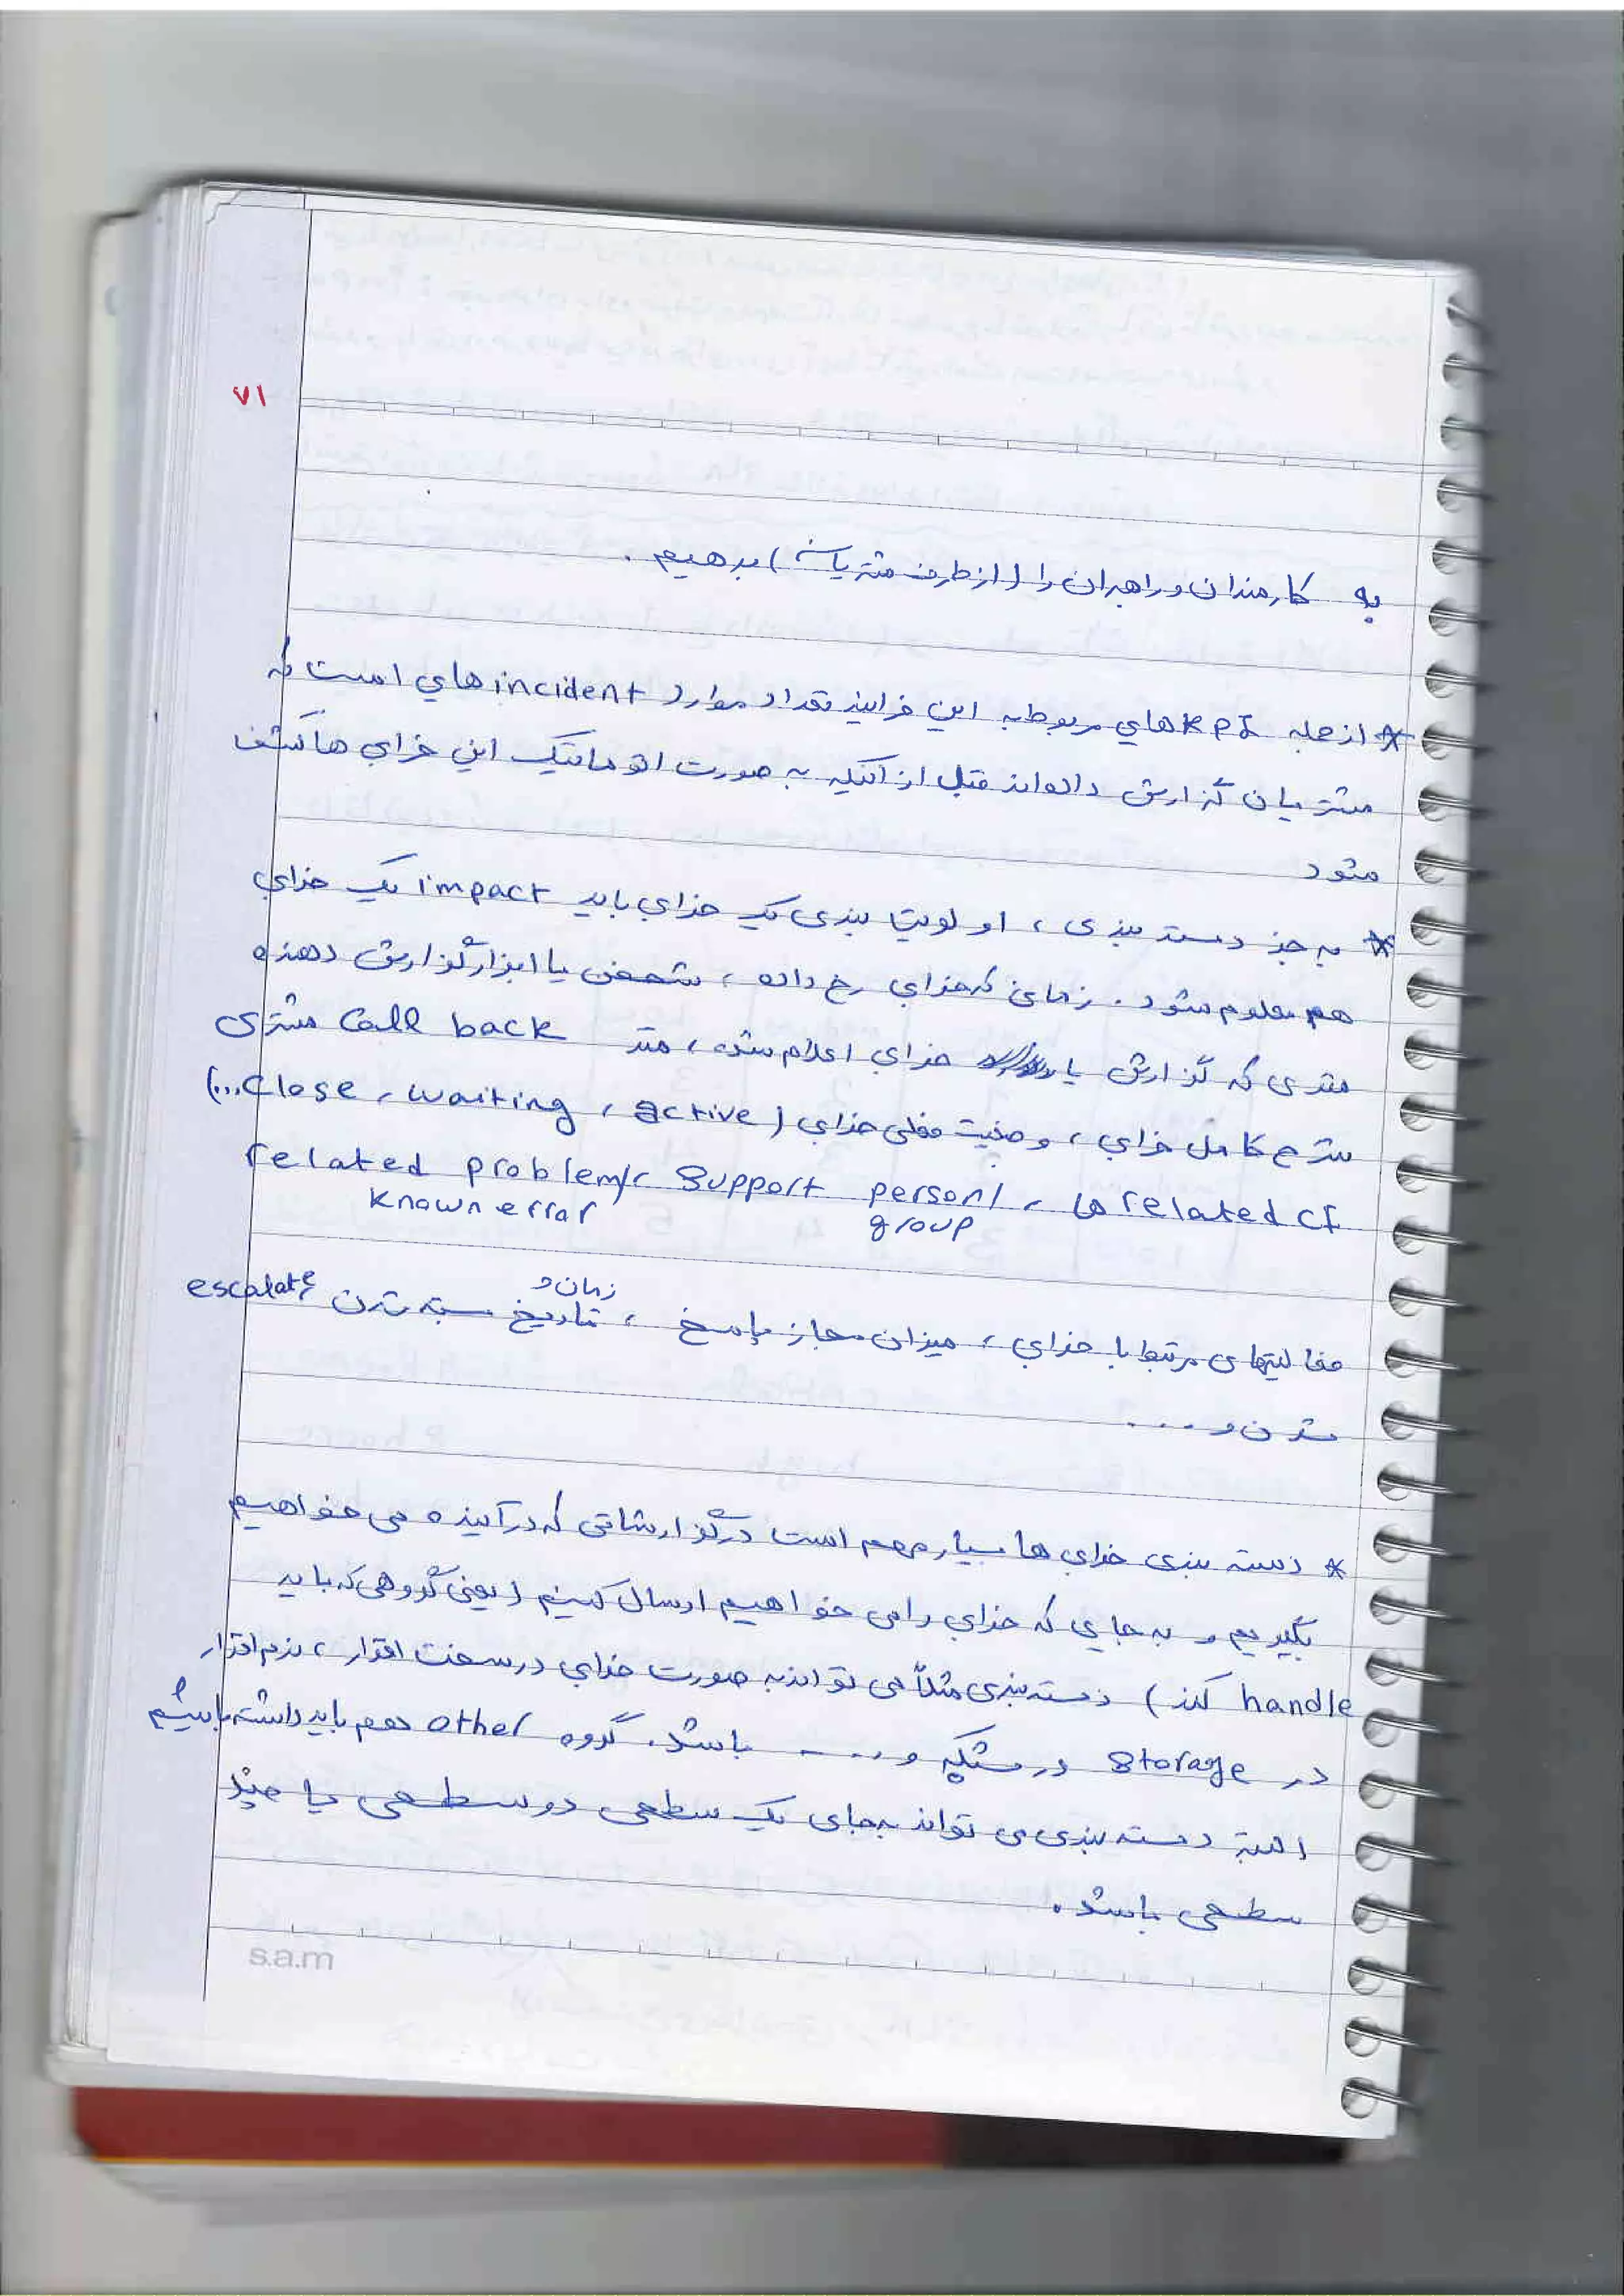 ۷۱
به کارمندان و راهبران را (از طرف مشتریان) بدهیم .
* از جمله KPI های مربوط به این فرایند تعداد موارد incident هایی است که
مشتریان گزارش داده‌اند قبل از آنکه به صورت اتوماتیک این خرابی ها کشف
شود
* به جز دسته بندی ، اولویت بندی یک خرابی باید impact یک خرابی
هم معلوم شود . زمانی که خرابی رخ داده ، شخص یا ابزار گزارش دهنده
متدی که گزارش یا خرابی اعلام شده ، متد Call back مشتری
شرح کامل خرابی ، وضعیت فعلی خرابی (active ، waiting ، Close...)
related CI ها ، Support person/ ، related problem/
group known error
زمان و
فعالیتهای مرتبط با خرابی ، میزان مجاز پاسخ ، تاریخ بسته شدن escalate
شدن و ....
* دسته بندی خرابی ها بسیار مهم است در گزارشاتی که در آینده می خواهیم
بگیریم و به جایی که خرابی را می خواهیم ارسال کنیم (یعنی گروهی که باید
handle کند) دسته بندی مثلاً می تواند به صورت خرابی در سخت افزار ، نرم افزار
در Storage در شبکه و .... باشد. گروه other هم باید داشته باشیم
البته دسته بندی می تواند بجای یک سطحی دو سطحی یا چند
سطحی باشد .
s.a.m